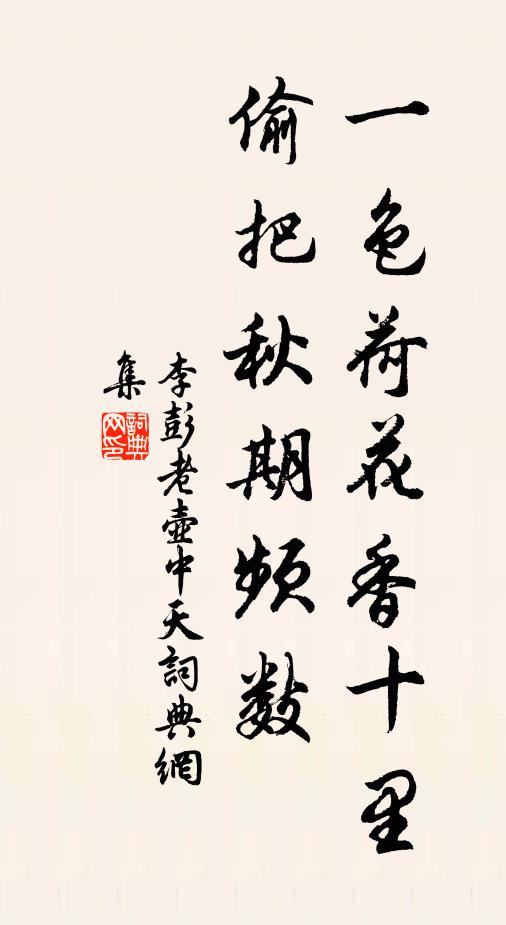 一色荷花香十里
偷把秋期频数
李彭老壶中天詞典網
集
詞典网印